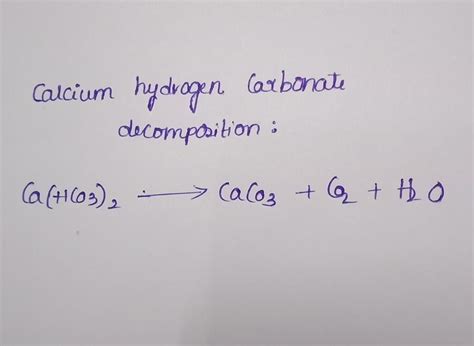 Calcium hydrogen Carbonate
decomposition :
Ca(HCO3)2 → CaCO3 + CO2 + H2O